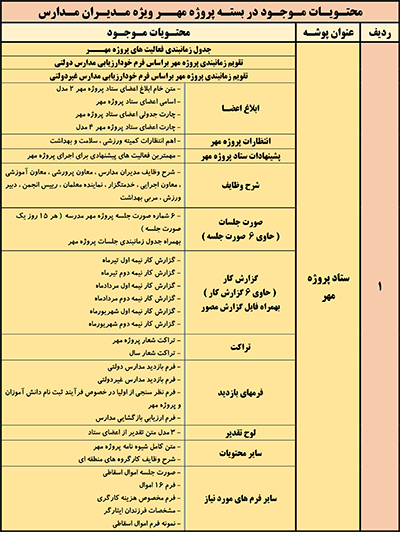 محتویات موجود در بسته پروژه مهر ویژه مدیران مدارس
ردیف
عنوان پوشه
محتویات موجود
۱
ستاد پروژه
مهر
جدول زمانبندی فعالیت های پروژه مهر
تقویم زمانبندی پروژه مهر براساس فرم خودارزیابی مدارس دولتی
تقویم زمانبندی پروژه مهر براساس فرم خودارزیابی مدارس غیردولتی
ابلاغ اعضا
- متن خام ابلاغ اعضای ستاد پروژه مهر ۲ مدل
- اسامی اعضای ستاد پروژه مهر
- چارت جدولی اعضای ستاد پروژه مهر
- چارت اعضای ستاد پروژه مهر ۴ مدل
انتظارات پروژه مهر
- اهم انتظارات کمیته ورزشی ، سلامت و بهداشت
پشنهادات ستاد پروژه مهر
- مهمترین فعالیت های پیشنهادی برای اجرای پروژه مهر
شرح وظایف
- شرح وظایف مدیران مدارس ، معاون پرورشی ، معاون آموزشی
، معاون اجرایی ، خدمتگزار ، نماینده معلمان ، رییس انجمن ، دبیر
ورزش ، مربی بهداشت
صورت جلسات
( حاوی ۶ صورت جلسه )
- ۶ شماره صورت جلسه پروژه مهر مدرسه ( هر ۱۵ روز یک
صورت جلسه )
بهمراه جدول زمانبندی جلسات پروژه مهر
گزارش کار
( حاوی ۶ گزارش کار )
بهمراه فایل گزارش مصور
- گزارش کار نیمه اول تیرماه
- گزارش کار نیمه دوم تیرماه
- گزارش کار نیمه اول مردادماه
- گزارش کار نیمه دوم مردادماه
- گزارش کار نیمه اول شهریورماه
- گزارش کار نیمه دوم شهریورماه
تراکت
- تراکت شعار پروژه مهر
- تراکت شعار سال
فرمهای بازدید
- فرم بازدید مدارس دولتی
- فرم بازدید مدارس غیردولتی
- فرم نظر سنجی از اولیا در خصوص فرآیند ثبت نام دانش آموزان
و پروژه مهر
- فرم ارزیابی بازگشایی مدارس
لوح تقدیر
- ۳ مدل متن تقدیر از اعضای ستاد
سایر محتویات
- متن کامل شیوه نامه پروژه مهر
- شرح وظایف کارگروه های منطقه ای
سایر فرم های مورد نیاز
- صورت جلسه اموال اسقاطی
- فرم ۱۶ اموال
- فرم مخصوص هزینه کارگری
- مشخصات فرزندان ایثارگر
- نمونه فرم اموال اسقاطی